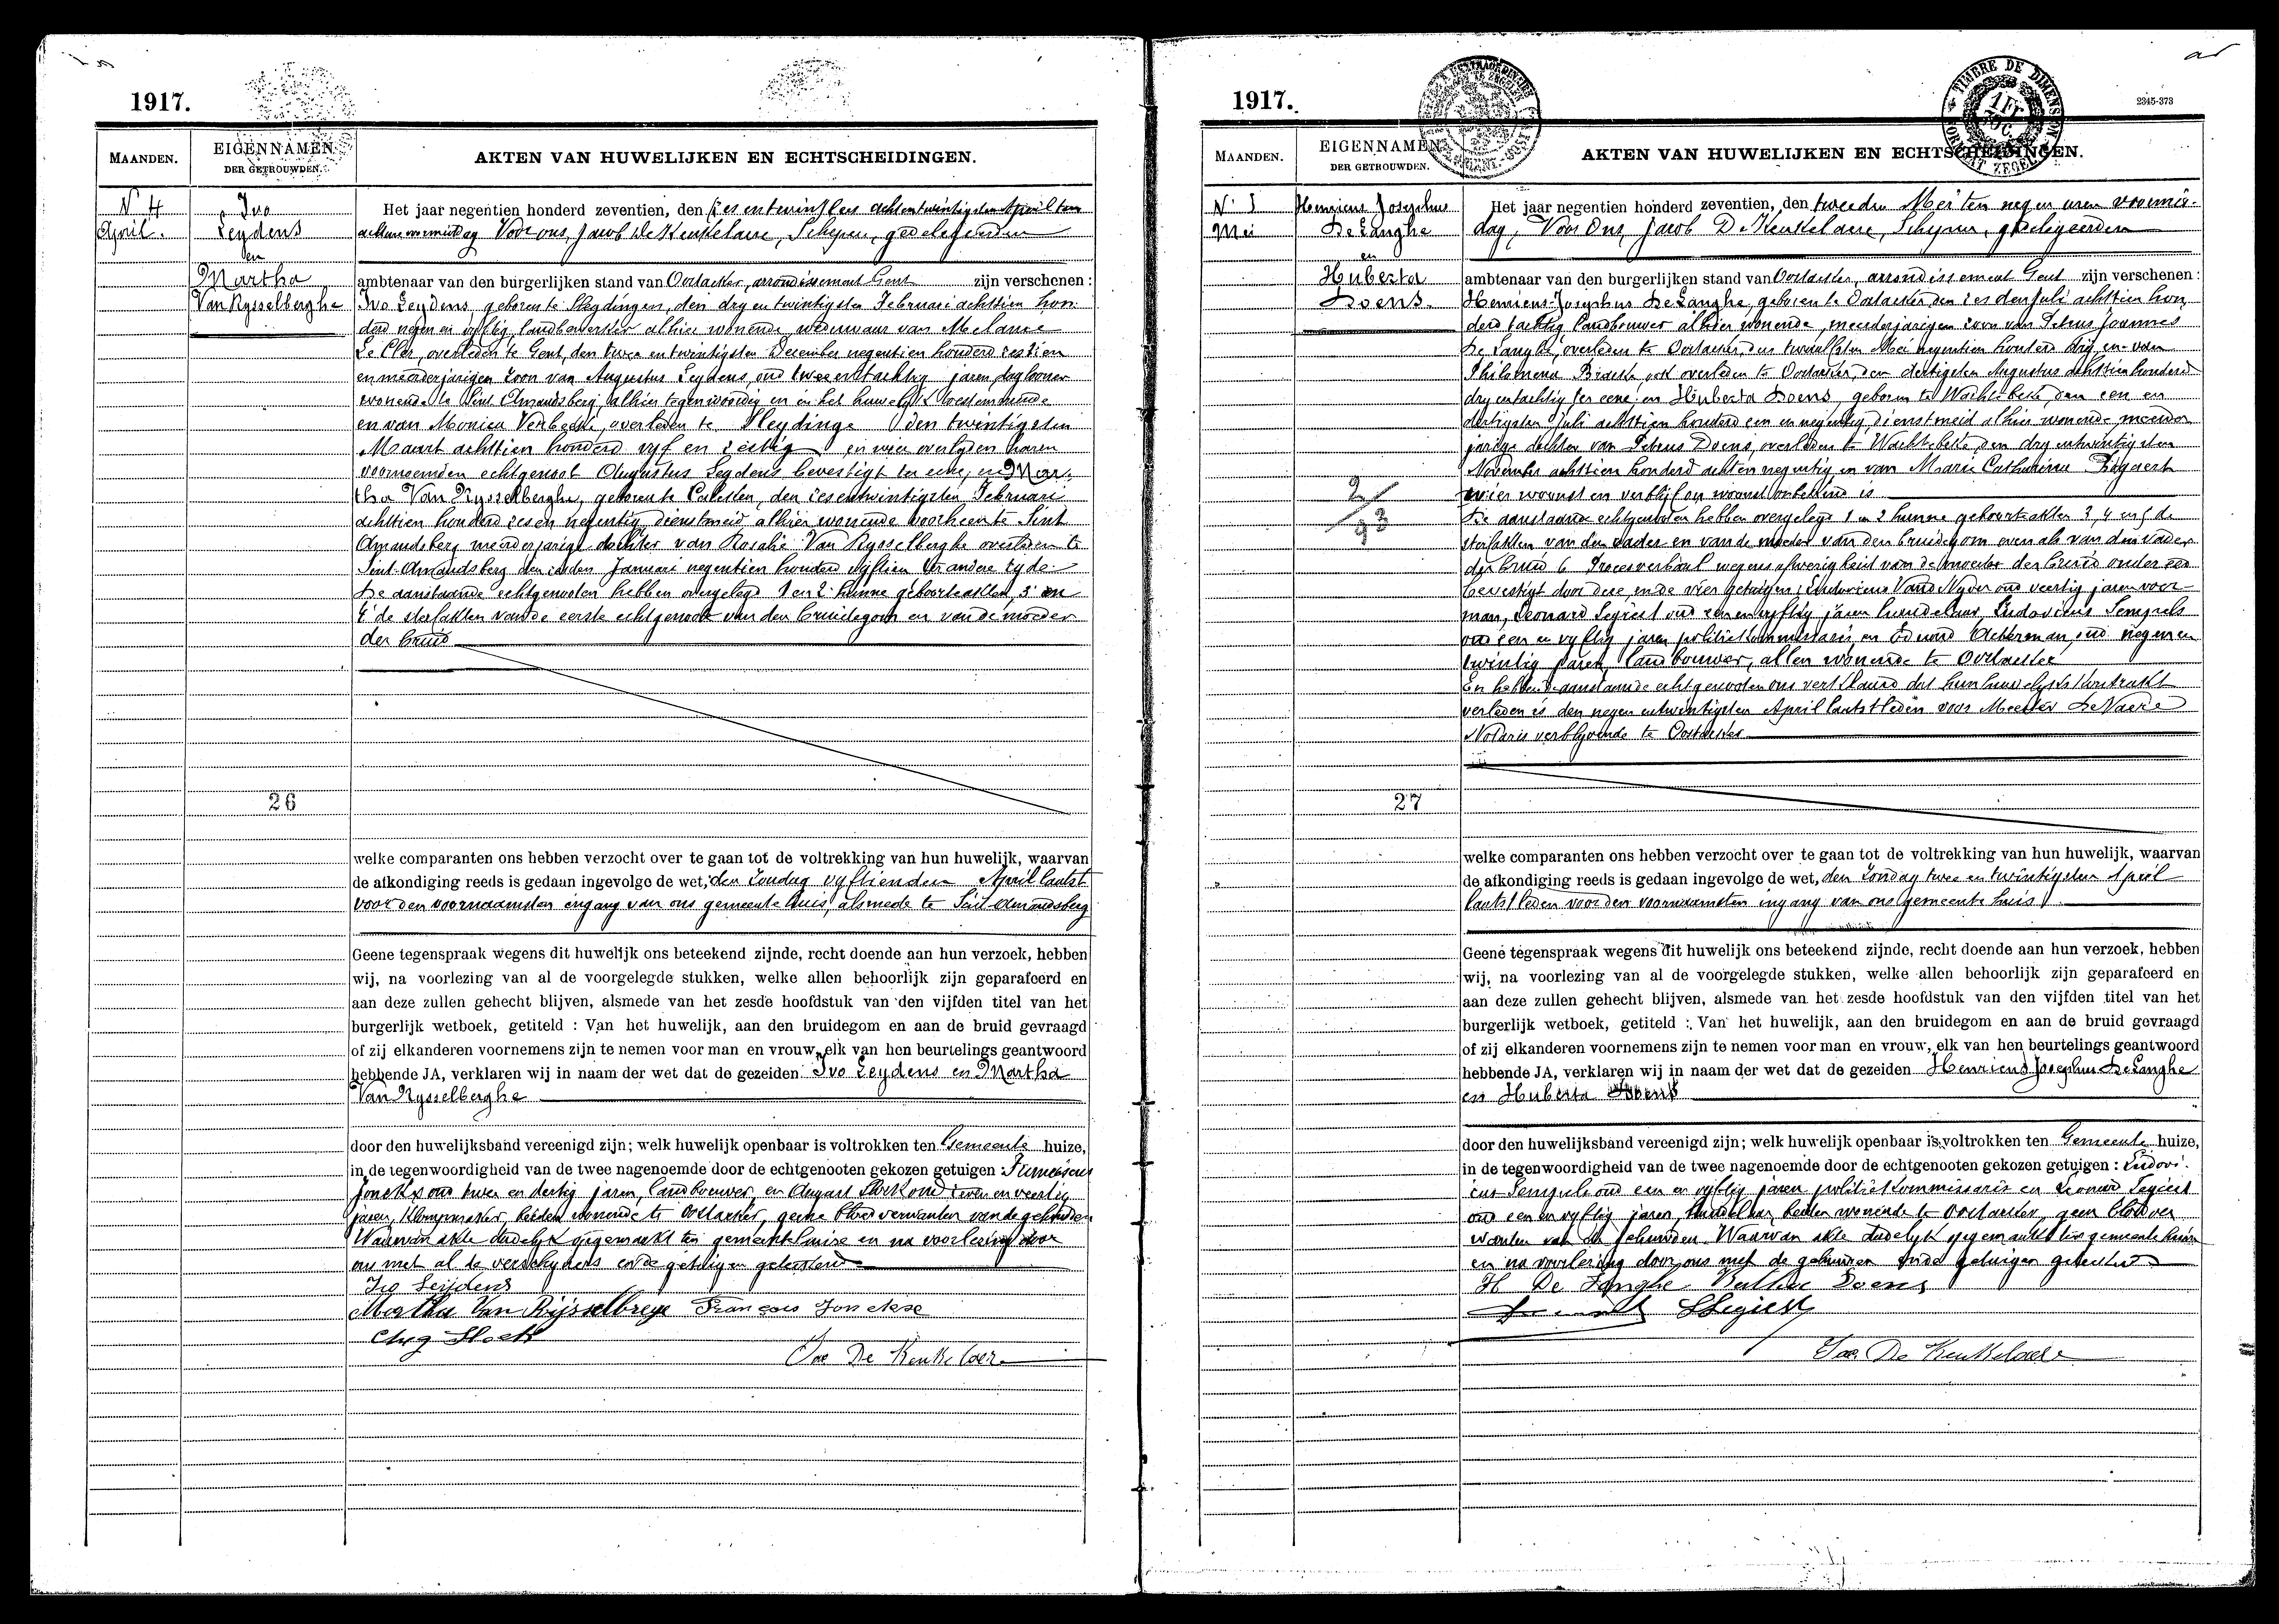 1917.
MAANDEN.
EIGENNAMEN
DER GETROUWDEN.
AKTEN VAN HUWELIJKEN EN ECHTSCHEIDINGEN.
N° 4
April.
Ivo
Leydens
en
Martha
Van Rysselberghe
Het jaar negentien honderd zeventien, den achtentwintigsten April ten
voormiddag Voor ons, Jacob De Keukelaere, Schepen, gedelegeerden
ambtenaar van den burgerlijken stand van Oostacker, arrondissement Gent zijn verschenen :
Ivo Leydens, geboren te Sleydingen, den dry en twintigsten Februari achttien hon
derd negen en vyftig, landbewerker alhier wonende, weduwaar van Melanie
De Cler, overleden te Gent, den twee en twintigsten December negentien honderd zestien
en meerderjarigen zoon van Augustus Leydens, oud twee en tachtig jaren, daglooner
wonende te Sint Amandsberg, alhier tegenwoordig en in het huwelyk toestemmende
en van Monica Verbeeke, overleden te Sleydinge den twintigsten
Maart achttien honderd vyf en zestig en wier overlyden haren
voornoemden echtgenoot Augustus Leydens bevestigt ter eene; en Mar-
tha Van Rysselberghe, geboren te Calcken, den zesentwintigsten Februari
achttien honderd zes en negentig dienstmeid alhier wonende voorheen te Sint
Amandsberg meerderjarige dochter van Rosalie Van Rysselberghe overleden te
Sint-Amandsberg den Januari negentien honderd vyftien ter andere zyde.
De aanstaande echtgenooten hebben overgelegd 1 en 2 hunne geboorteakten, 3 en
4 de sterfakten van de eerste echtgenoote van den bruidegom en van de moeder
der bruid
26
welke comparanten ons hebben verzocht over te gaan tot de voltrekking van hun huwelijk, waarvan
de afkondiging reeds is gedaan ingevolge de wet, den Zondag vyftienden April laatst
voor den voornaamsten ingang van ons gemeente huis, alsmede te Sint Amandsberg
Geene tegenspraak wegens dit huwelijk ons beteekend zijnde, recht doende aan hun verzoek, hebben
wij, na voorlezing van al de voorgelegde stukken, welke allen behoorlijk zijn geparafeerd en
aan deze zullen gehecht blijven, alsmede van het zesde hoofdstuk van den vijfden titel van het
burgerlijk wetboek, getiteld : Van het huwelijk, aan den bruidegom en aan de bruid gevraagd
of zij elkanderen voornemens zijn te nemen voor man en vrouw, elk van hen beurtelings geantwoord
hebbende JA, verklaren wij in naam der wet dat de gezeiden Ivo Leydens en Martha
Van Rysselberghe
door den huwelijksband vereenigd zijn; welk huwelijk openbaar is voltrokken ten Gemeente huize,
in de tegenwoordigheid van de twee nagenoemde door de echtgenooten gekozen getuigen :
oud twee en dertig jaren, landbouwer, en August oud zeven en veertig
jaren, beiden wonende te Oostacker, geene bloedverwanten van de gehuwden
Waarvan akte dadelyk opgemaakt ten gemeentehuize en na voorlezing door
ons met al de verschyners en de getuigen geteekend
Ivo Leydens
Martha Van Rijsselbrege François Jonckse
Aug
Jac De Keukelaere
1917.
2345-373
TIMBRE DE DIMENSION
MAANDEN.
EIGENNAMEN
DER GETROUWDEN.
AKTEN VAN HUWELIJKEN EN ECHTSCHEIDINGEN.
N° 5
Mei
Henricus Josephus
De Langhe
en
Huberta
Doens
Het jaar negentien honderd zeventien, den tweeden Mei ten negen uren voormid-
dag, Voor Ons, Jacob De Keukelaere, Schepen, gedelegeerden
ambtenaar van den burgerlijken stand van Oostacker, arrondissement Gent zijn verschenen :
Henricus-Josephus De Langhe, geboren te Oostacker, den zesden Juli achttien hon
derd tachtig landbouwer alhier wonende, meerderjarigen zoon van Petrus Joannes
De Langhe, overleden te Oostacker, den twaalfsten Mei negentien honderd dry, en van
Philomena ook overleden te Oostacker, den dertigsten Augustus achttien honderd
dry en tachtig ter eene; en Huberta Doens, geboren te Wachtebeke, den een en
dertigsten Juli achttien honderd een en negentig, dienstmeid alhier wonende meerder
jarige dochter van Petrus Doens, overleden te Wachtebeke, den dry entwintigsten
November achttien honderd acht en negentig en van Marie Catharina
wier woonst en verblyf onbekend is
De aanstaande echtgenooten hebben overgelegd 1 en 2 hunne geboorteakten 3, 4 en 5 de
sterfakten van den vader en van de moeder van den bruidegom even als van den vader
der bruid 6 Procesverbaal wegens afwezigheid van de moeder der bruid onder eed
bevestigd door deze en de vier getuigen; Ludovicus oud veertig jaren voer-
man, Leonard Segiest oud een en vyftig jaren handelaar, Ludovicus Sempels
oud een en vyftig jaren politiekommissaris en Eduard Ackerman, oud negen en
twintig jaren, landbouwer, allen wonende te Oostacker
En hebben de aanstaande echtgenooten ons verklaard dat hun huwelykskontrakt
verleden is den negen entwintigsten April laatstleden voor Meester De Naere
Notaris verblyvende te Oostacker
27
welke comparanten ons hebben verzocht over te gaan tot de voltrekking van hun huwelijk, waarvan
de afkondiging reeds is gedaan ingevolge de wet, den Zondag twee en twintigsten April
laatstleden voor den voornaamsten ingang van ons gemeente huis
Geene tegenspraak wegens dit huwelijk ons beteekend zijnde, recht doende aan hun verzoek, hebben
wij, na voorlezing van al de voorgelegde stukken, welke allen behoorlijk zijn geparafeerd en
aan deze zullen gehecht blijven, alsmede van het zesde hoofdstuk van den vijfden titel van het
burgerlijk wetboek, getiteld : Van het huwelijk, aan den bruidegom en aan de bruid gevraagd
of zij elkanderen voornemens zijn te nemen voor man en vrouw, elk van hen beurtelings geantwoord
hebbende JA, verklaren wij in naam der wet dat de gezeiden Henricus Josephus De Langhe
en Huberta Doens
door den huwelijksband vereenigd zijn; welk huwelijk openbaar is voltrokken ten Gemeente huize,
in de tegenwoordigheid van de twee nagenoemde door de echtgenooten gekozen getuigen : Ludovi-
cus Sempels oud een en vyftig jaren politiekommissaris en Leonard Segiest
oud een en vyftig jaren, handelaar, beiden wonende te Oostacker, geen bloedver
wanten van de gehuwden. Waarvan akte dadelyk opgemaakt ten gemeente huize
en na voorlezing door ons met de gehuwden en de getuigen geteekend
H De Langhe Doens
LSegiest
Jac. De Keukelaere